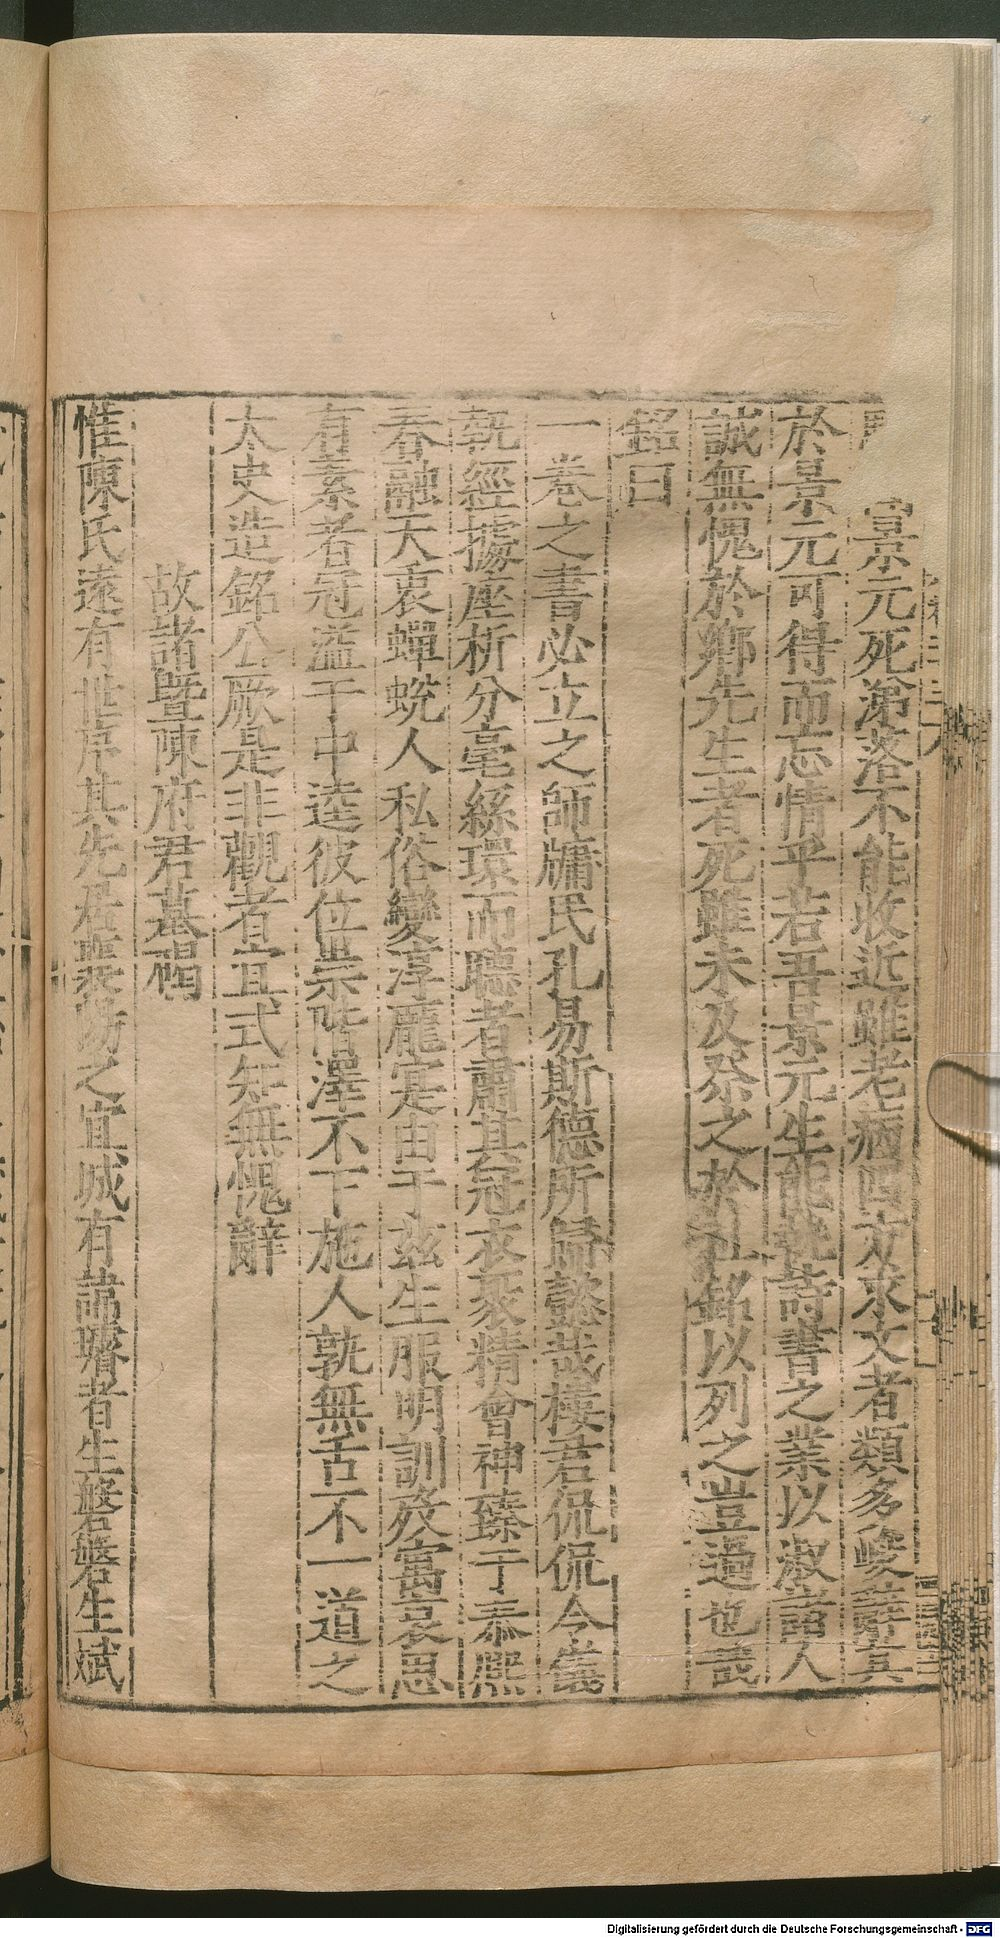 景元死淪落不能收近雖老病四方求文者類多峻辭其
於景元可得而忘情乎若吾景元生能執詩書之業以淑諸人
誠無愧於鄉先生者死雖未及祭之於社銘以列之豈過也哉
銘曰
一卷之書必立之師牖民孔易斯德所歸懿哉樓君侃侃令儀
執經據座析分毫絲環而聽者肅其冠衣聚精會神臻于泰熙
春融天衷蟬蛻人私俗變淳龐寔由于玆生服明訓歿寓哀思
有素者冠溢于中逵彼位崇階澤不下施人孰無舌不一道之
太史造銘公厥是非觀者宜式知無愧辭
故諸暨陳府君墓碣
惟陳氏遠有世序其先居襄陽之宜城有諱瓚者生磐磐生斌
Digitalisierung gefördert durch die Deutsche Forschungsgemeinschaft - DFG